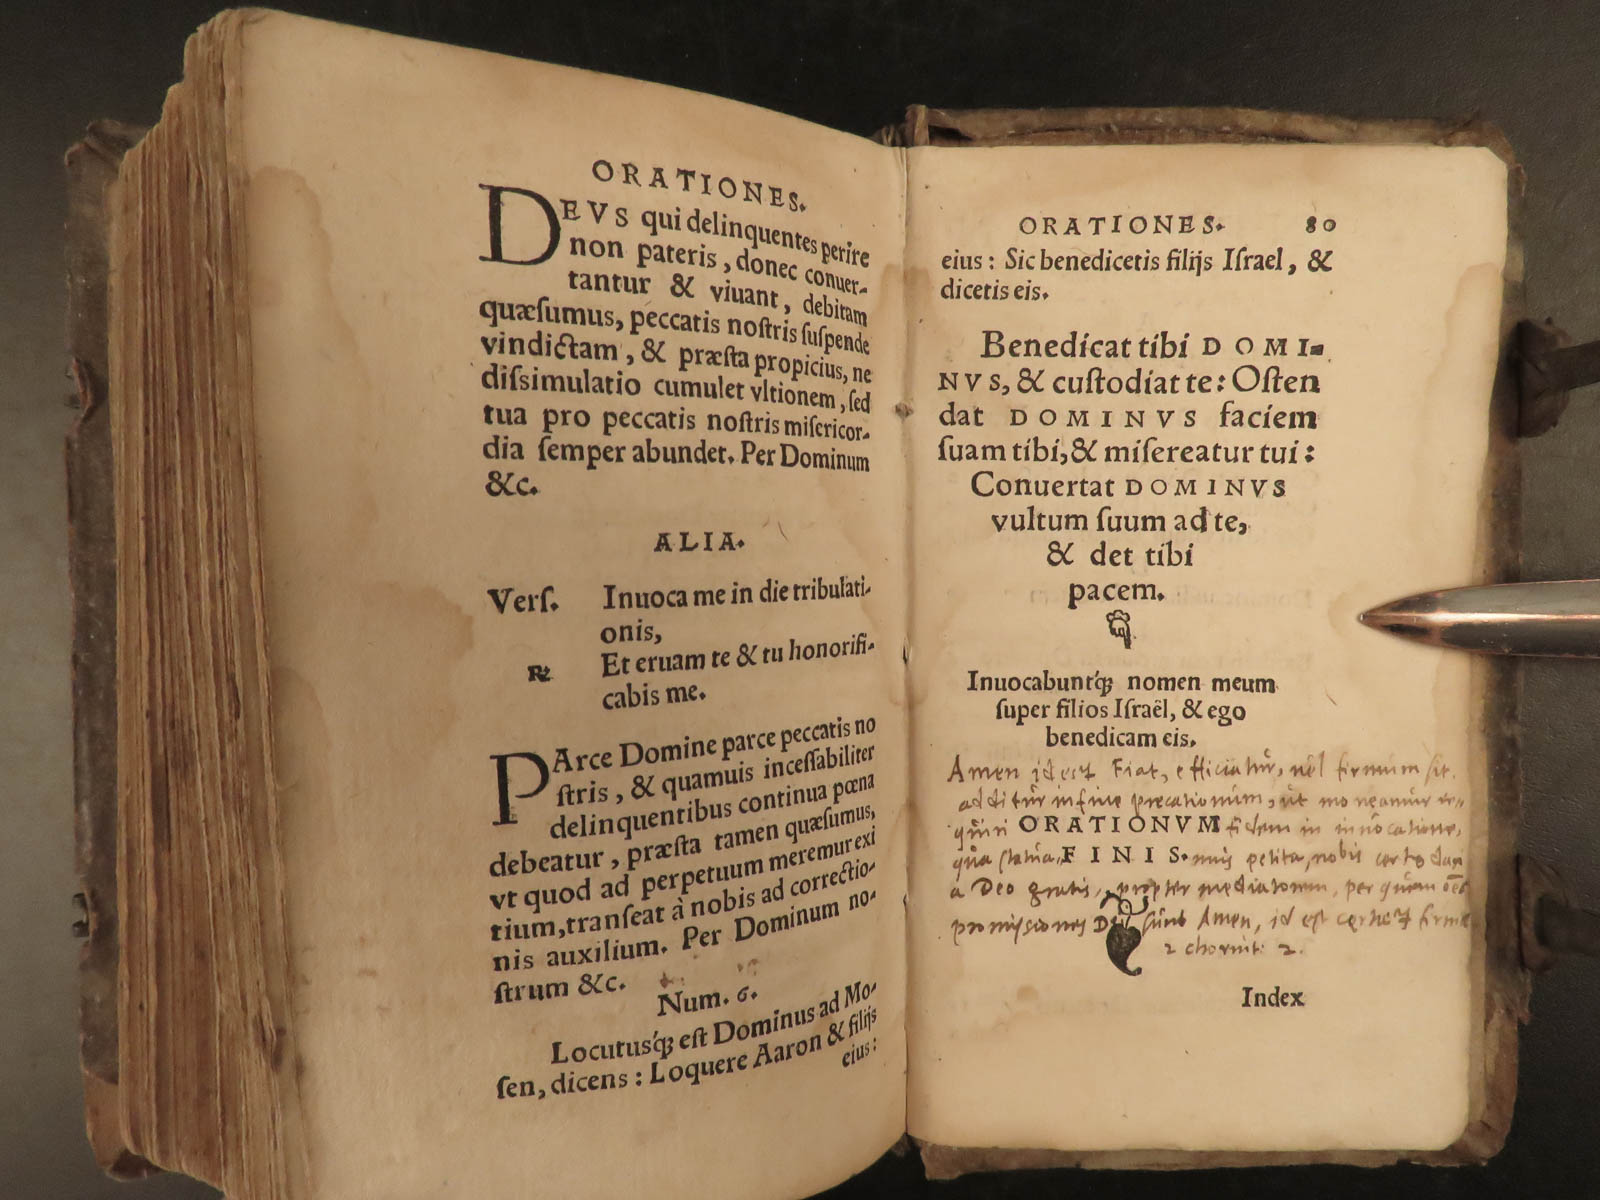 ORATIONES.
DEVS qui delinquentes perire
non pateris, donec conuer-
tantur & viuant, debitam
quæsumus, peccatis noſtris ſuſpende
vindictam, & præſta propicius, ne
diſsimulatio cumulet vltionem, ſed
tua pro peccatis noſtris miſericor-
dia ſemper abundet. Per Dominum
&c.
ALIA.
Verſ. Inuoca me in die tribulati-
onis,
℞ Et eruam te & tu honorifi-
cabis me.
PArce Domine parce peccatis no
ſtris, & quamuis inceſſabiliter
delinquentibus continua pœna
debeatur, præſta tamen quæſumus,
vt quod ad perpetuum meremur exi
tium, tranſeat à nobis ad correctio-
nis auxilium. Per Dominum no-
ſtrum &c.
Num. 6.
Locutusq́; eſt Dominus ad Mo-
ſen, dicens : Loquere Aaron & filijs
eius:
ORATIONES. 80
eius : Sic benedicetis filijs Iſrael, &
dicetis eis.
Benedicat tibi DOMI-
NVS, & cuſtodiat te: Oſten
dat DOMINVS faciem
ſuam tibi, & miſereatur tui :
Conuertat DOMINVS
vultum ſuum ad te,
& det tibi
pacem.
Inuocabuntq́; nomen meum
ſuper filios Iſraël, & ego
benedicam eis.
Amen id est Fiat, efficiatur, vel firmum sit.
additur in fine precationum, ut moneamur re-
quiri ORATIONVM fidem in invocatione,
qua FINIS. petita, nobis certo dari
a Deo gratis, propter mediatorem, per quem
promissiones Dei sunt Amen, id est
2 chorint. 2.
Index